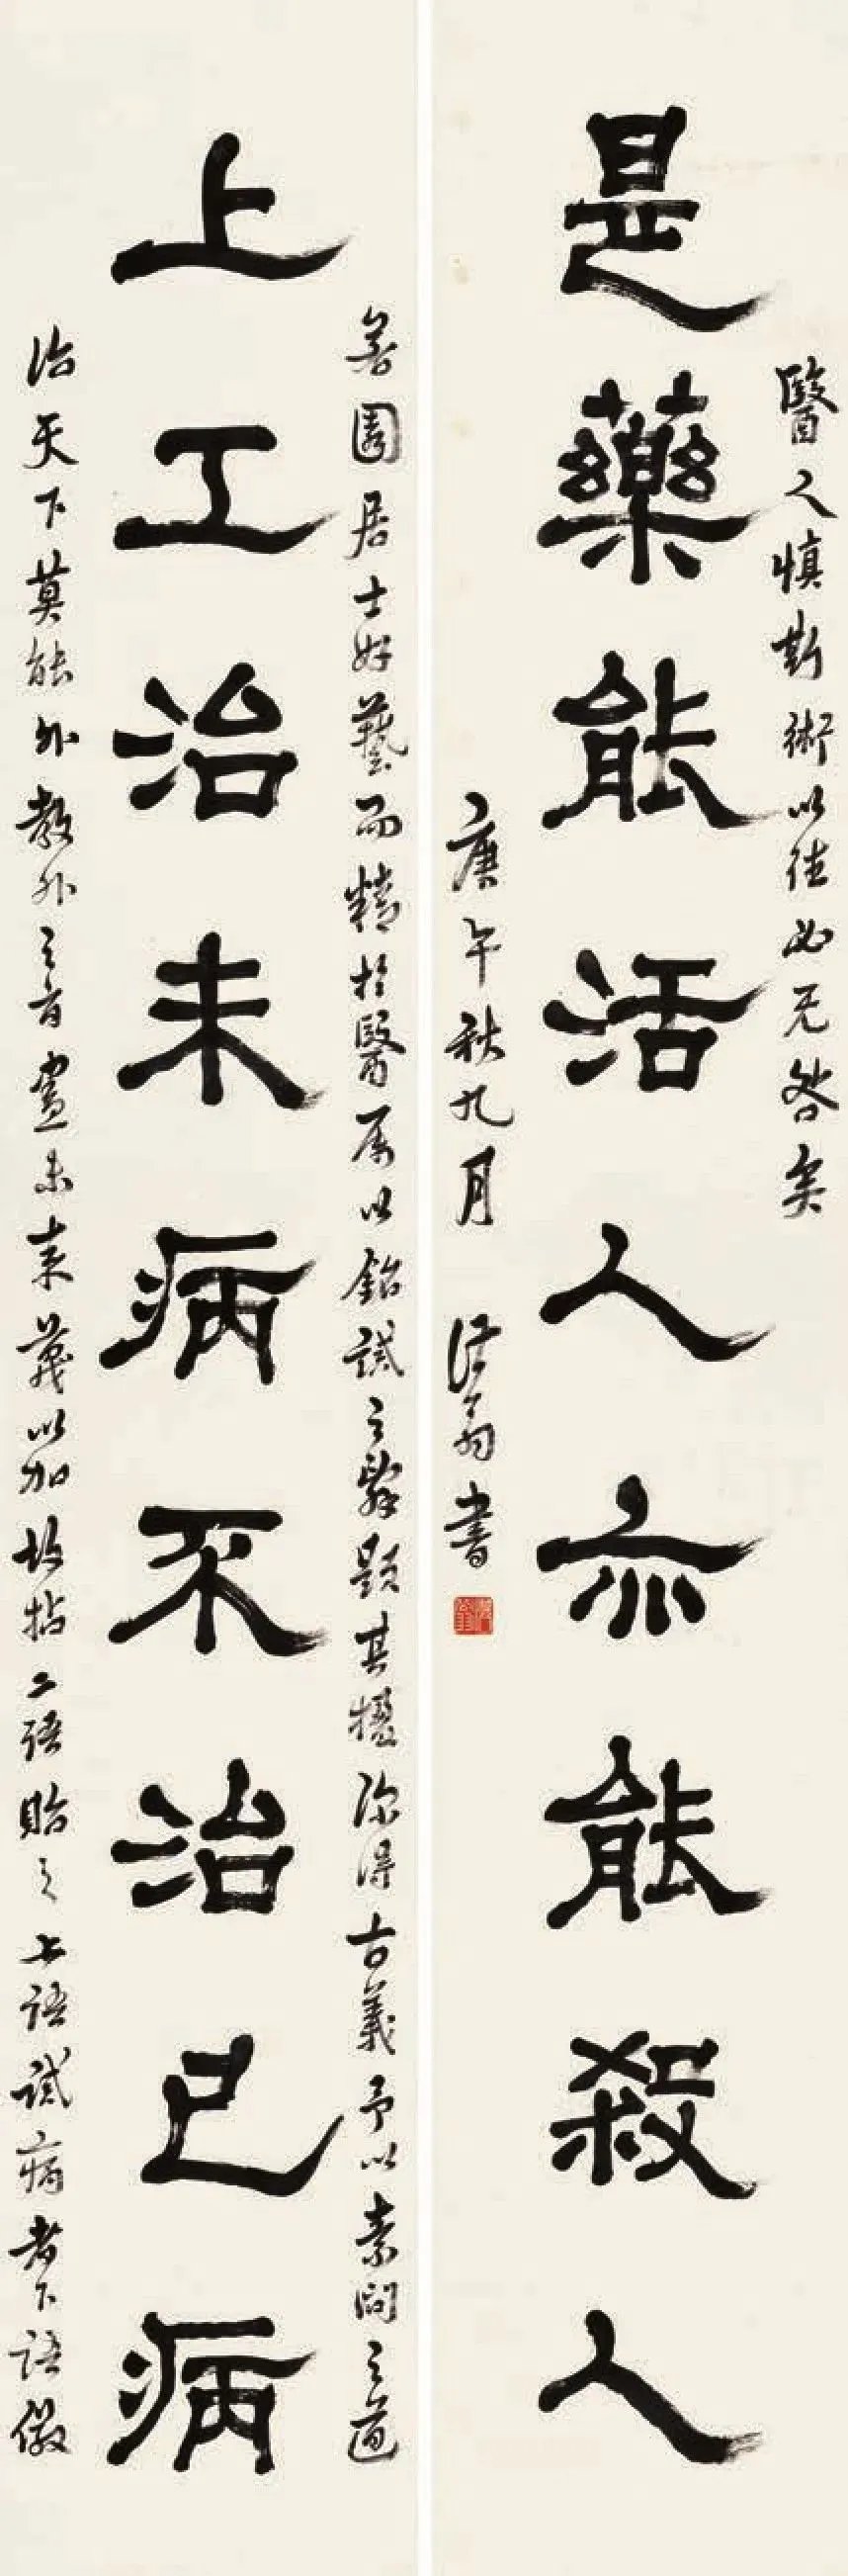 是藥能活人亦能殺人
上工治未病不治已病
善園居士好藝而精於醫屬以鉛試之辭題其楹深得古義予以素問之道
治天下莫能外教外之旨盡未來義以加故拈二語貽之上語試病者下語儆
醫人慎斯術以往必无咎矣
庚午秋九月
翁書